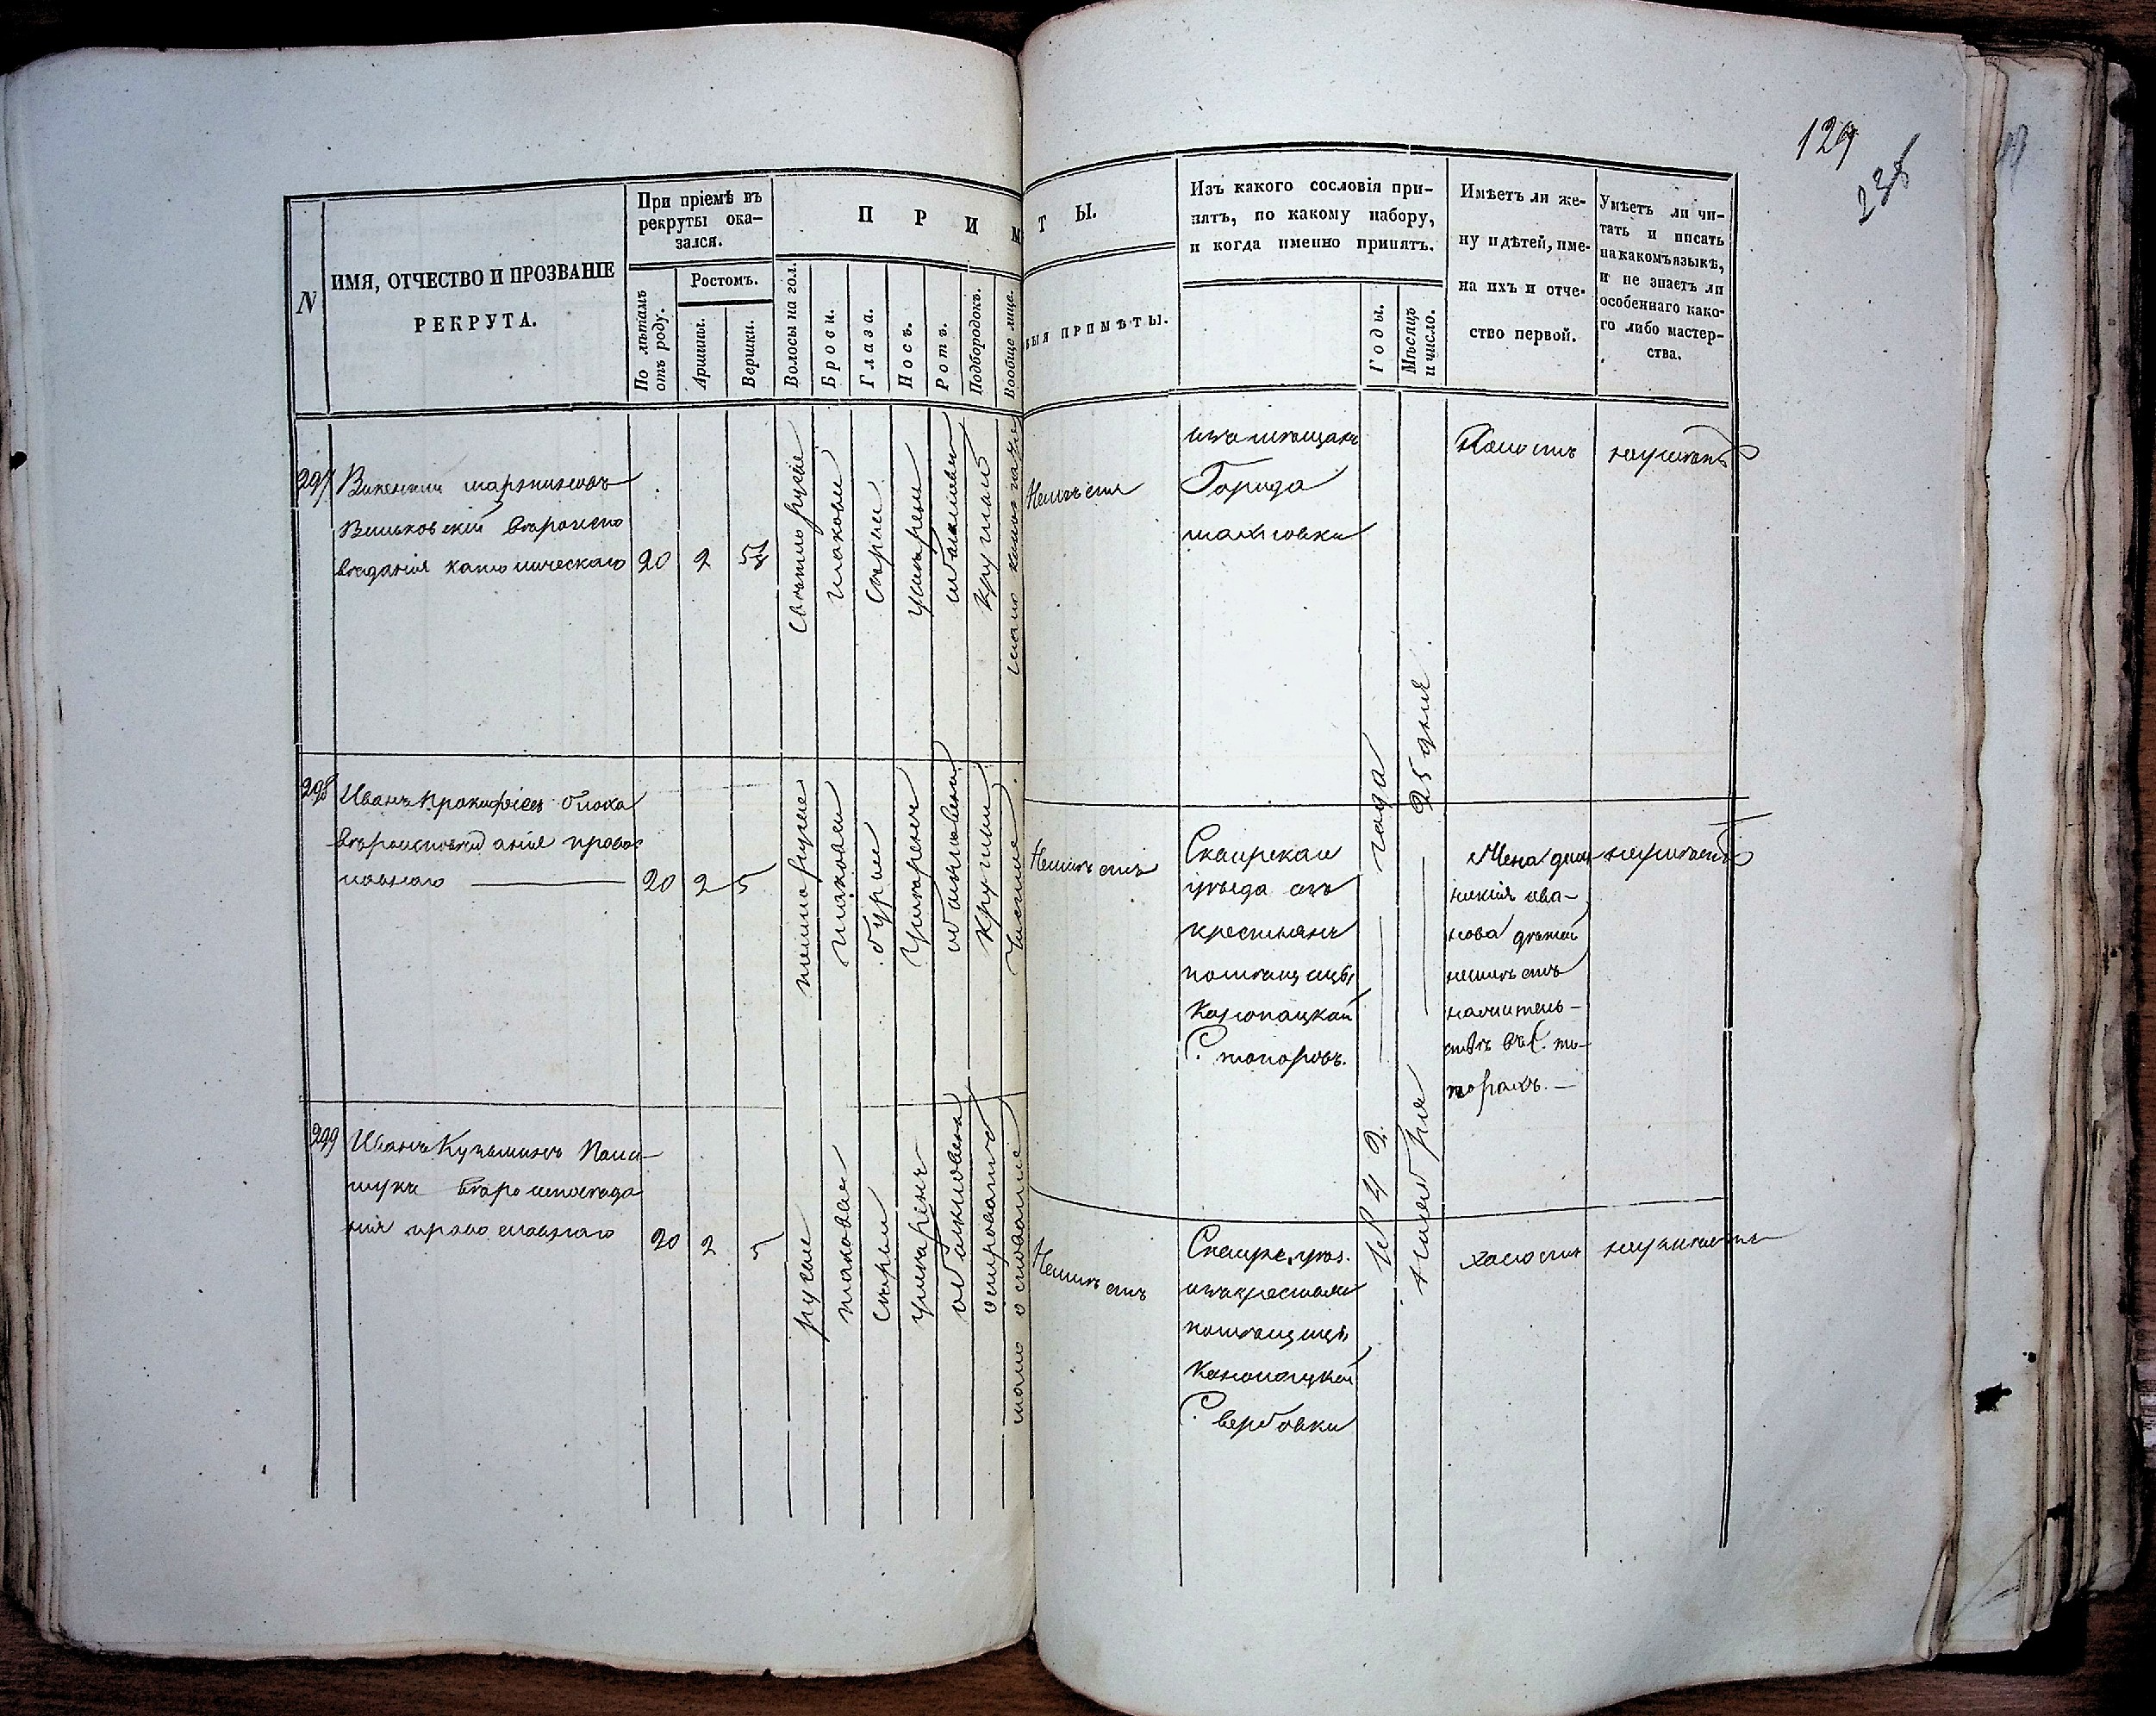 129
236
N
ИМЯ, ОТЧЕСТВО И ПРОЗВАНІЕ
РЕКРУТА.
При пріемѣ въ
рекруты ока-
зался.
По лѣтамъ
отъ роду.
Ростомъ.
Аршины.
Вершки.
П Р И М
Волосы на гол.
Брови.
Глаза.
Носъ.
Ротъ.
Подбородокъ.
Вообще лице.
Т Ы.
ВЫЯ ПРИМѢТЫ.
Изъ какого сословія при-
нятъ, по какому набору,
и когда именно принятъ.
Годы.
Мѣсяцъ
и число.
Имѣетъ ли же-
ну и дѣтей, име-
на ихъ и отче-
ство первой.
Умѣетъ ли чи-
тать и писать
на какомъ языкѣ,
и не знаетъ ли
особеннаго како-
го либо мастер-
ства.
297
Викентій
вѣроиспо
вѣданія католическаго
20
2
5
свѣтло русые
таковые
сѣрые
умѣрен
обыкновен
круглый
Неимѣетъ
изъ мѣщанъ
Города
Махновки
Холостъ
неумѣетъ
298
Иванъ Прокофіевъ
вѣроисповѣданія право
славнаго
20
2
5
темнорусые
таковые
бурые
умѣренъ
обыкновенъ
круглый
чистое
Неимѣетъ
Сквирскаго
уѣзда изъ
крестьянъ
помѣщицы
С. топоровъ.
Жена
ива-
нова дѣтей
неимѣетъ
жапитель-
ствъ въ С. то-
порахъ.
неумѣетъ
1842 года
Ноября 25 дня
299
Иванъ Кузьминъ
вѣроисповѣда
нія православнаго
20
2
русые
таковые
сѣрые
умѣренъ
обыкновенъ
Неимѣетъ
Сквир. уѣз.
изъ крестьянъ
помѣщицы
С. вербовки
холостъ
неумѣетъ